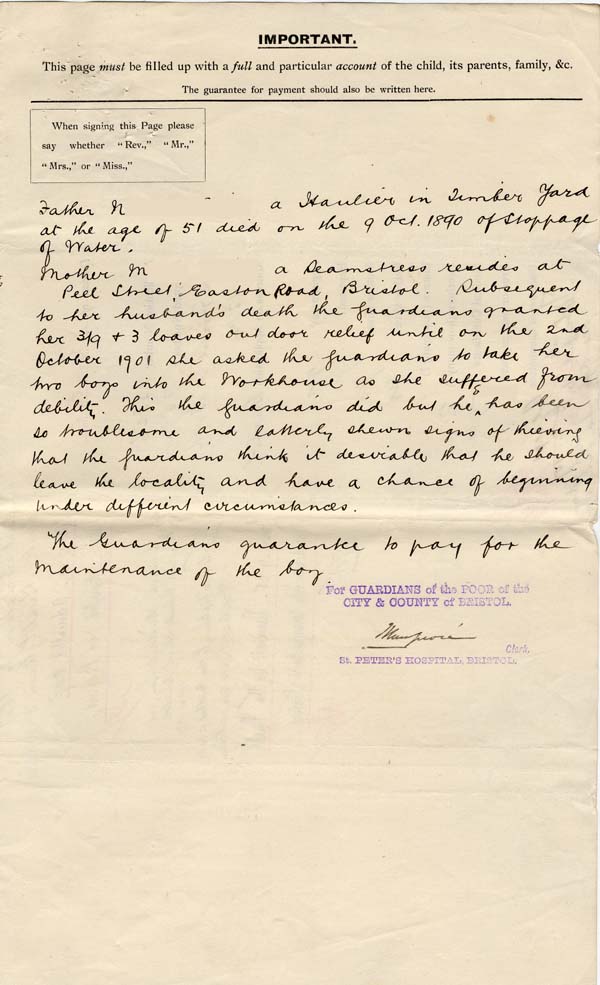 IMPORTANT.
This page must be filled up with a full and particular account of the child, its parents, family, &c.
The guarantee for payment should also be written here.
When signing this Page please
say whether "Rev.," "Mr.,"
"Mrs.," or "Miss.,"
Father N a Haulier in Timber Yard
at the age of 51 died on the 9 Oct. 1890 of Stoppage
of Water.
Mother M a Seamstress resides at
Peel Street, Easton Road, Bristol. Subsequent
to her husband's death the Guardians granted
her 3/9 & 3 loaves out door relief until on the 2nd
October 1901 she asked the Guardians to take her
two boys into the Workhouse as she suffered from
debility. This the Guardians did but he has been
so troublesome and latterly shewn signs of thieving
that the Guardians think it desirable that he should
leave the locality and have a chance of beginning
under different circumstances.
The Guardians guarantee to pay for the
maintenance of the boy
For GUARDIANS of the POOR of the
CITY & COUNTY of BRISTOL.
Clerk.
St. PETER'S HOSPITAL, BRISTOL.